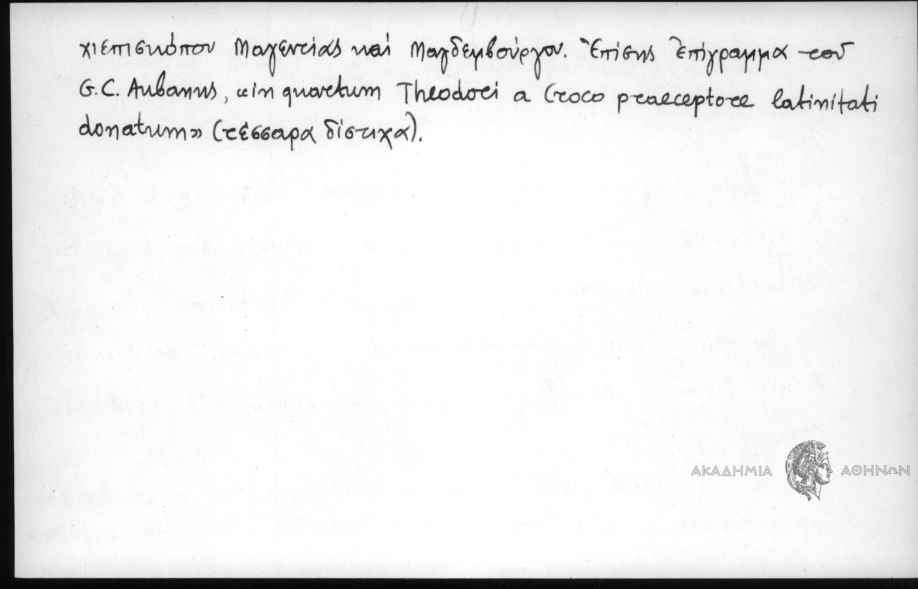 χιεπισκόπου Μαγεντίας καὶ Μαγδεμβούργου. Ἐπίσης ἐπίγραμμα τοῦ
G.C. Aubanus, «in quartum Theodori a Croco praeceptore latinitati
donatum» (τέσσαρα δίστιχα).
ΑΚΑΔΗΜΙΑ ΑΘΗΝΩΝ